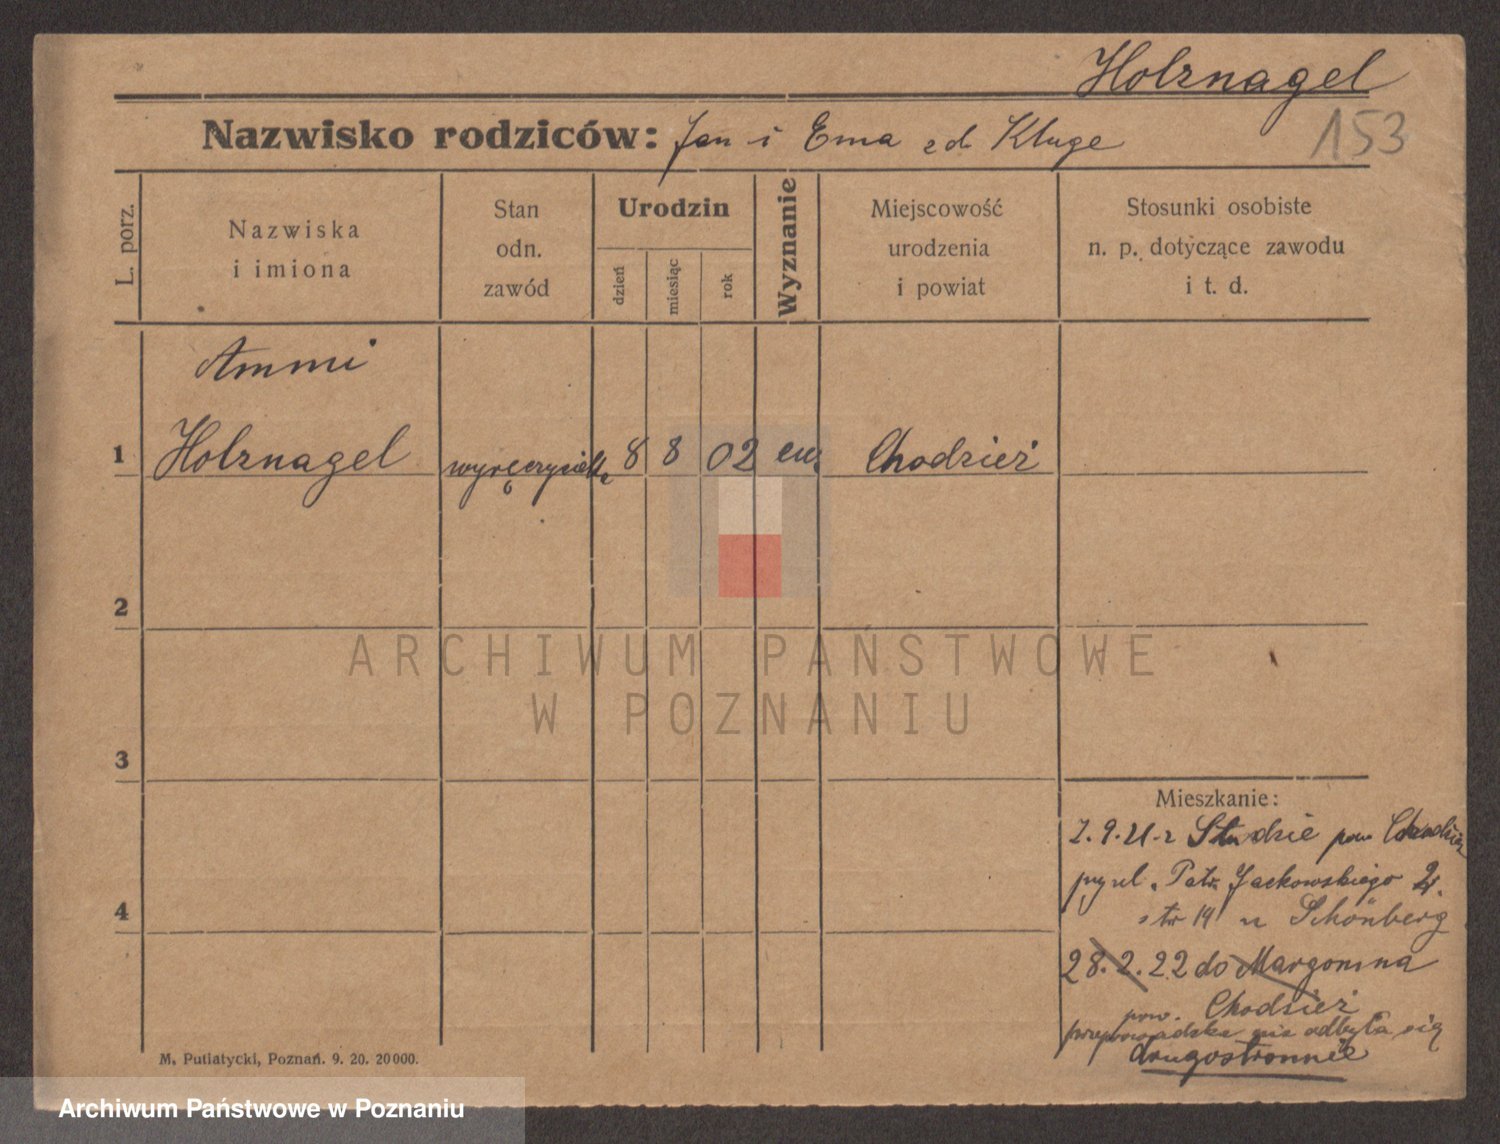 Holznagel
153
Nazwisko rodziców: Jan i Ema zd Kluge
L. porz.
Nazwiska
i imiona
Stan
odn.
zawód
Urodzin
dzień
miesiąc
rok
Wyznanie
Miejscowość
urodzenia
i powiat
Stosunki osobiste
n. p. dotyczące zawodu
i t. d.
Ammi
1 Holznagel wyręczycielka 8 8 02 ew. Chodzież
2
3
4
ARCHIWUM PAŃSTWOWE
W POZNANIU
Mieszkanie:
7.9.21 z Studzie pow Chodzież
przy ul. Patr. Jackowskiego 21.
str 14 u Schönberg
28.2.22 do Margonina
pow. Chodzież
przeprowadzka nie odbyła się
drugostronnie
M. Putiatycki, Poznań. 9. 20. 20000.
Archiwum Państwowe w Poznaniu